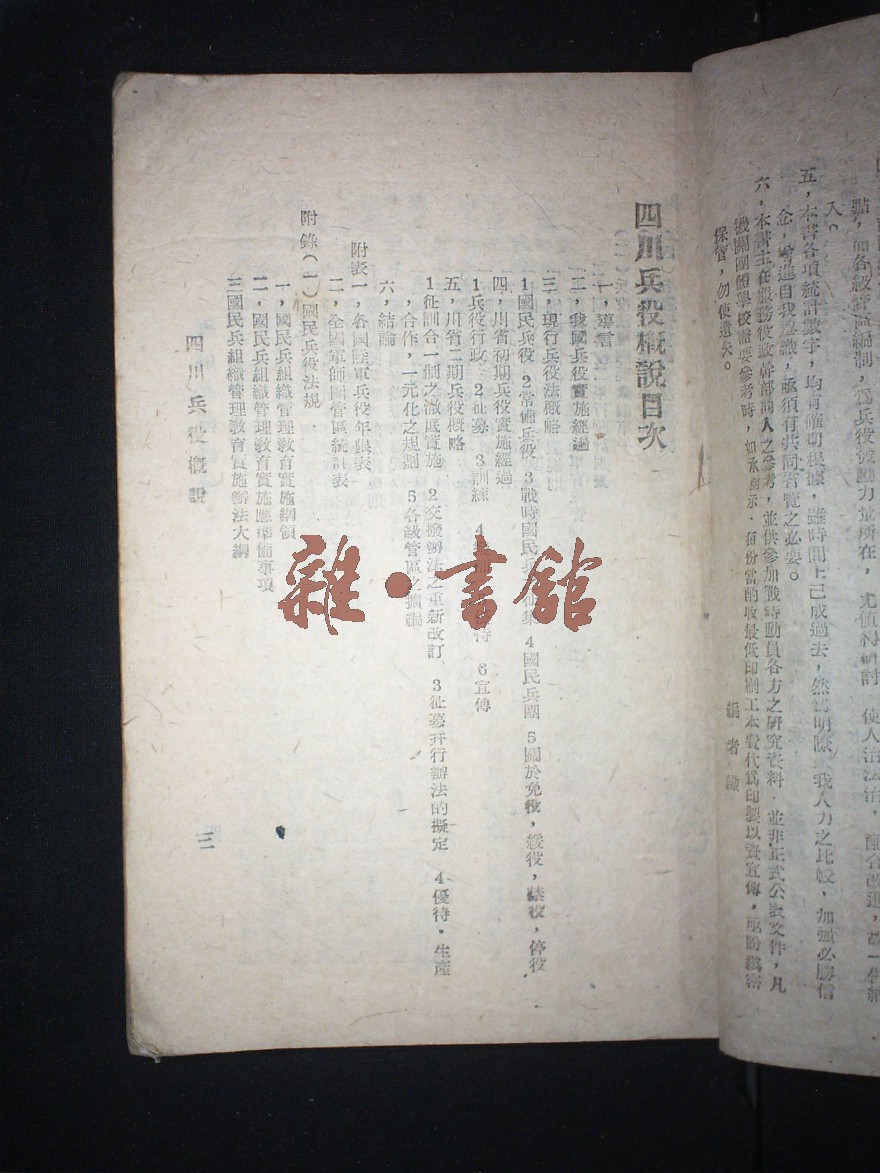 點,而各級管區編制,為兵役發動力量所在,尤值得研討
入。
五,本書各項統計數字,均有確切根據,雖時間上已成過去,然為明瞭我人力之比較,加強必勝信
念,增進自我認識,亟須有共同省覽之必要。
六,本書主在服務役政幹部同人之參考,並供參加戰時動員各方之研究資料,並非正式公表文件,凡
機關團體學校需要參考時,如承函示,每份當酌收最低印刷工本費代為印製以資宣傳,亟盼
保管,勿使遺失。
編者識
四川兵役概說目次
一,導言
二,我國兵役實施經過
三,現行兵役法概略
1國民兵役 2常備兵役 3戰時國民兵 征集 4國民兵團 5關於免役,緩役,禁役,停役
四,川省初期兵役實施經過
1兵役行政 2征募 3訓練 4 待 6宣傳
五,川省二期兵役概略
1征訓合一制之澈底實施 2交撥辦法之重新改訂 3征募并行辦法的擬定 4優待・生產
,合作,一元化之規劃 5各級管區之擴編
六,結論
附表一,各國陸軍兵役年限表
二,全國軍師團管區統計表
附錄(一)國民兵役法規
一,國民兵組織管理教育實施綱領
二,國民兵組織管理教育實施應準備事項
三國民兵組織管理教育實施辦法大綱
四川兵役概說
三
雜・書館